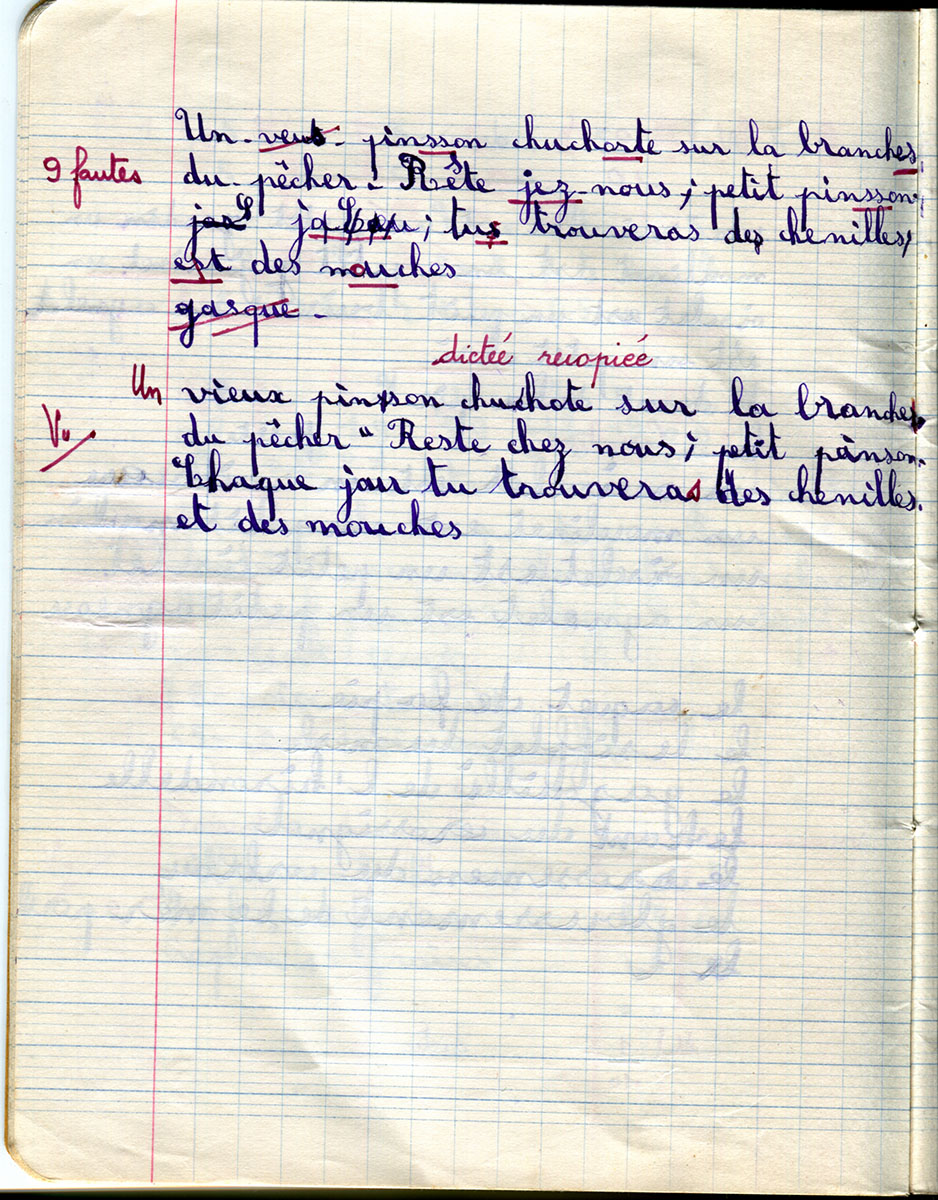 Un pinsson chuchorte sur la branches
9 fautes
du pêcher. Reste jez nous, petit pinsson
tus trouveras des chenilles,
est des mouches
gasque.
dicteé recopieé
Un vieux pinsson chuchote sur la branche.
Vu.
du pêcher " Reste chez nous, petit pinson.
Chaque jour tu trouveras des chenilles.
et des mouches